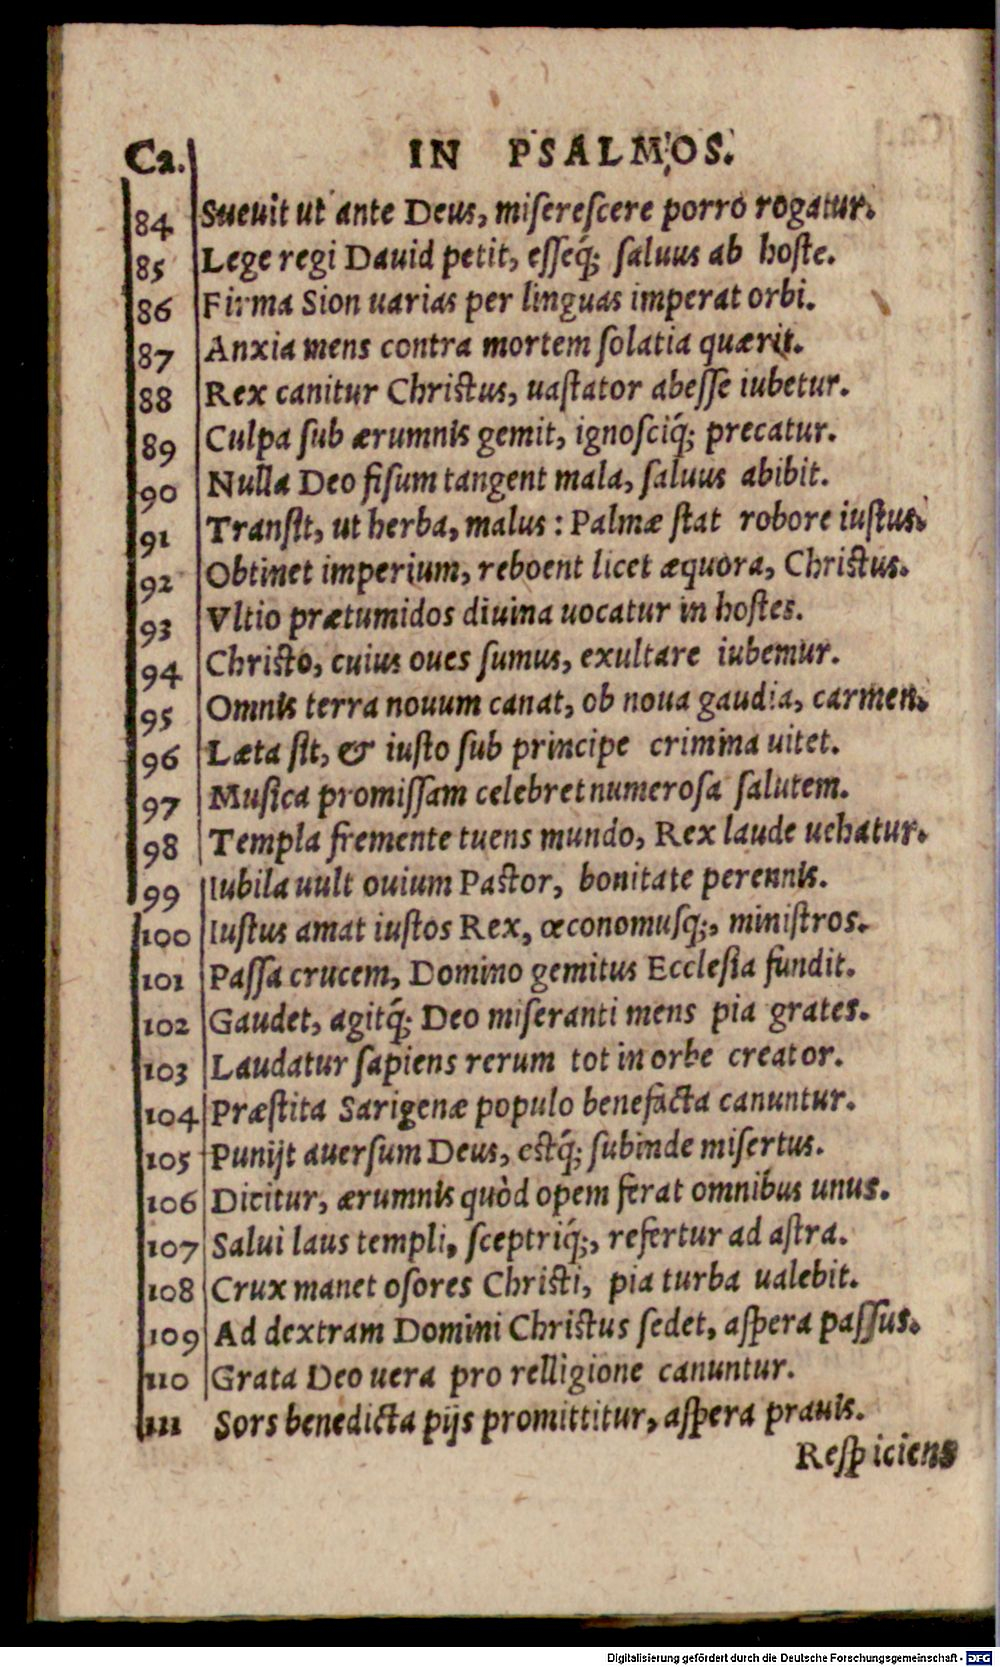 Ca. IN PSALMOS.
84 Sueuit ut ante Deus, miserescere porrò rogatur.
85 Lege regi Dauid petit, esseq́; saluus ab hoste.
86 Firma Sion uarias per linguas imperat orbi.
87 Anxia mens contra mortem solatia quærit.
88 Rex canitur Christus, uastator abesse iubetur.
89 Culpa sub ærumnis gemit, ignosciq́; precatur.
90 Nulla Deo fisum tangent mala, saluus abibit.
91 Transit, ut herba, malus: Palmæ stat robore iustus.
92 Obtinet imperium, reboent licet æquora, Christus.
93 Vltio prætumidos diuina uocatur in hostes.
94 Christo, cuius oues sumus, exultare iubemur.
95 Omnis terra nouum canat, ob noua gaudia, carmen.
96 Læta sit, & iusto sub principe crimina uitet.
97 Musica promissam celebret numerosa salutem.
98 Templa fremente tuens mundo, Rex laude uehatur.
99 Iubila uult ouium Pastor, bonitate perennis.
100 Iustus amat iustos Rex, œconomusq́;, ministros.
101 Passa crucem, Domino gemitus Ecclesia fundit.
102 Gaudet, agitq́; Deo miseranti mens pia grates.
103 Laudatur sapiens rerum tot in orbe creator.
104 Præstita Sarigenæ populo benefacta canuntur.
105 Punijt auersum Deus, estq́; subinde misertus.
106 Dicitur, ærumnis quòd opem ferat omnibus unus.
107 Salui laus templi, sceptriq́;, refertur ad astra.
108 Crux manet osores Christi, pia turba ualebit.
109 Ad dextram Domini Christus sedet, aspera passus.
110 Grata Deo uera pro relligione canuntur.
111 Sors benedicta pijs promittitur, aspera prauis.
Respiciens
Digitalisierung gefördert durch die Deutsche Forschungsgemeinschaft - DFG